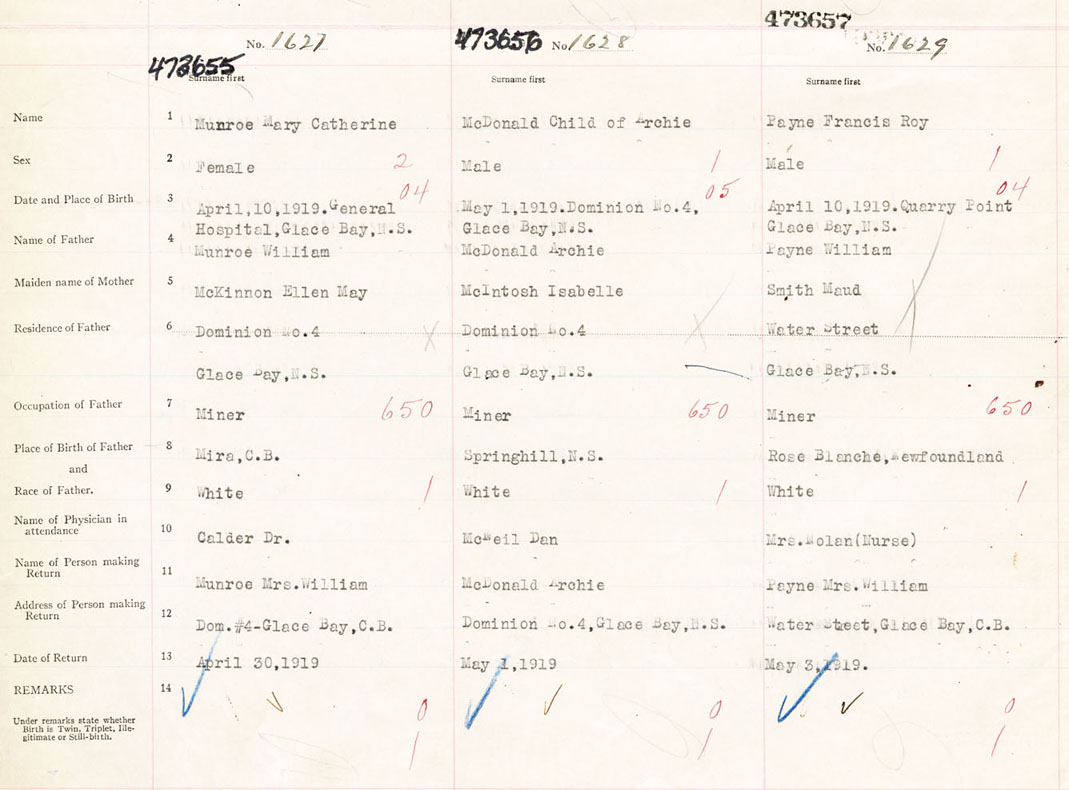 473657
No. 1627 473656 No 1628 No. 1629
473655
Surname first Surname first Surname first
Name 1 Munroe Mary Catherine McDonald Child of Archie Payne Francis Roy
Sex 2 Female 2 Male 1 Male 1
04 05 04
Date and Place of Birth 3 April,10,1919.General May 1,1919.Dominion No.4, April 10,1919.Quarry Point
Hospital,Glace Bay,N.S. Glace Bay,N.S. Glace Bay,N.S.
Name of Father 4 Munroe William McDonald Archie Payne William
Maiden name of Mother 5 McKinnon Ellen May McIntosh Isabelle Smith Maud
Residence of Father 6 Dominion No.4 Dominion No.4 Water Street
Glace Bay,N.S. Glace Bay,N.S. Glace Bay,N.S.
Occupation of Father 7 Miner 650 Miner 650 Miner 650
Place of Birth of Father 8 Mira,C.B. Springhill,N.S. Rose Blanche,Newfoundland
and
Race of Father. 9 White 1 White 1 White 1
Name of Physician in
attendance 10 Calder Dr. McNeil Dan Mrs.Nolan(Nurse)
Name of Person making
Return 11 Munroe Mrs.William McDonald Archie Payne Mrs.William
Address of Person making
Return 12 Dom.#4-Glace Bay,C.B. Dominion No.4,Glace Bay,N.S. Water Street,Glace Bay,C.B.
Date of Return 13 April 30,1919 May 1,1919 May 3,1919.
REMARKS 14
0 0 0
Under remarks state whether
Birth is Twin, Triplet, Ille-
gitimate or Still-birth.
1 1 1